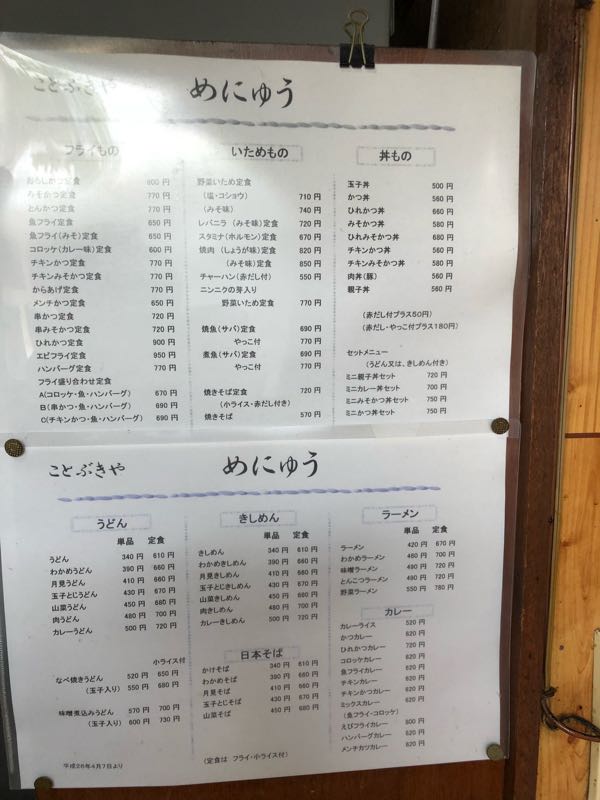 ことぶきや めにゅう
フライもの
おろしかつ定食 800円
みそかつ定食 770円
とんかつ定食 770円
魚フライ定食 650円
魚フライ(みそ)定食 650円
コロッケ(カレー味)定食 600円
チキンかつ定食 770円
チキンみそかつ定食 770円
からあげ定食 770円
メンチかつ定食 650円
串かつ定食 720円
串みそかつ定食 720円
ひれかつ定食 900円
エビフライ定食 950円
ハンバーグ定食 770円
フライ盛り合わせ定食
A(コロッケ・魚・ハンバーグ) 670円
B(串かつ・魚・ハンバーグ) 690円
C(チキンかつ・魚・ハンバーグ) 690円
いためもの
野菜いため定食
(塩・コショウ) 710円
(みそ味) 740円
レバニラ (みそ味)定食 720円
スタミナ(ホルモン)定食 670円
焼肉 (しょうが味)定食 820円
(みそ味)定食 850円
チャーハン(赤だし付) 550円
ニンニクの芽入り
野菜いため定食 770円
焼魚(サバ)定食 690円
やっこ付 770円
煮魚(サバ)定食 690円
やっこ付 770円
焼きそば定食 720円
(小ライス・赤だし付き)
焼きそば 570円
丼もの
玉子丼 500円
かつ丼 560円
ひれかつ丼 660円
みそかつ丼 580円
ひれみそかつ丼 680円
チキンかつ丼 560円
チキンみそかつ丼 580円
肉丼(豚) 560円
親子丼 560円
(赤だし付プラス50円)
(赤だし・やっこ付プラス180円)
セットメニュー
(うどん又は、きしめん付き)
ミニ親子丼セット 720円
ミニカレー丼セット 700円
ミニみそかつ丼セット 750円
ミニかつ丼セット 750円
ことぶきや めにゅう
うどん
単品 定食
うどん 340円 610円
わかめうどん 390円 660円
月見うどん 410円 660円
玉子とじうどん 430円 670円
山菜うどん 450円 680円
肉うどん 480円 700円
カレーうどん 500円 720円
小ライス付
なべ焼きうどん 520円 650円
(玉子入り) 550円 680円
味噌煮込みうどん 570円 700円
(玉子入り) 600円 730円
平成26年4月7日より
きしめん
単品 定食
きしめん 340円 610円
わかめきしめん 390円 660円
月見きしめん 410円 660円
玉子とじきしめん 430円 670円
山菜きしめん 450円 680円
肉きしめん 480円 700円
カレーきしめん 500円 720円
日本そば
かけそば 340円 610円
わかめそば 390円 660円
月見そば 410円 660円
玉子とじそば 430円 670円
山菜そば 450円 680円
(定食は フライ・小ライス付)
ラーメン
単品 定食
ラーメン 420円 670円
わかめラーメン 460円 700円
味噌ラーメン 490円 720円
とんこつラーメン 490円 720円
野菜ラーメン 550円 780円
カレー
カレーライス 520円
かつカレー 620円
ひれかつカレー 720円
コロッケカレー 620円
魚フライカレー 620円
チキンカレー 620円
チキンかつカレー 620円
ミックスカレー 620円
(魚フライ・コロッケ)
えびフライカレー 800円
ハンバーグカレー 620円
メンチカツカレー 620円